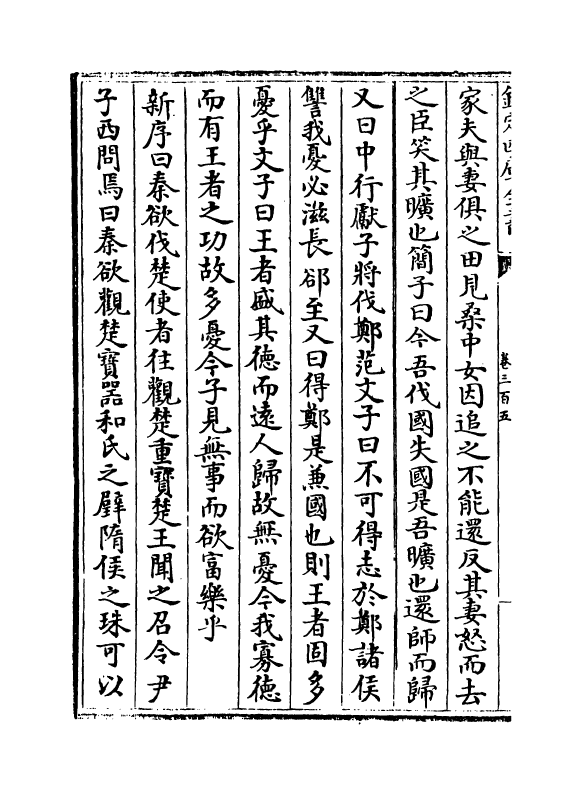 卷三百五
家夫與妻俱之田見桑中女因追之不能還反其妻怒而去
之臣笑其曠也簡子曰今吾伐國失國是吾曠也還師而歸
又曰中行獻子將伐鄭范文子曰不可得志於鄭諸侯
讐我憂必滋長郤至又曰得鄭是兼國也則王者固多
憂乎文子曰王者盛其徳而遠人歸故無憂今我寡徳
而有王者之功故多憂今子見無事而欲富樂乎
新序曰秦欲伐楚使者徃觀楚重寳楚王聞之召令尹
子西問焉曰秦欲觀楚寳器和氏之璧隋侯之珠可以